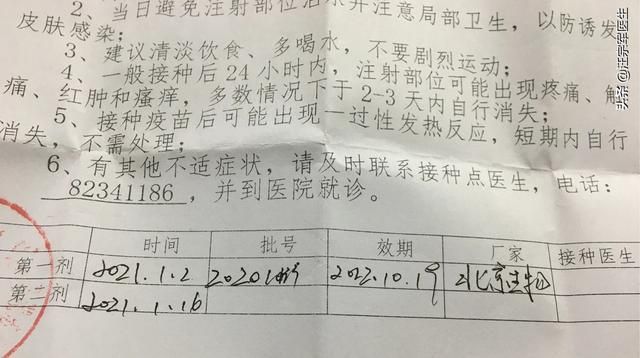 2、当日避免注射部位沾水并注意局部卫生，以防诱发
皮肤感染；
3、建议清淡饮食、多喝水，不要剧烈运动；
4、一般接种后24小时内，注射部位可能出现疼痛、触
痛、红肿和瘙痒，多数情况下于2-3天内自行消失；
5、接种疫苗后可能出现一过性发热反应，短期内自行
消失，不需处理；
6、有其他不适症状，请及时联系接种点医生，电话：
82341186，并到医院就诊。
时间 批号 效期 厂家 接种医生
第一剂 2021.1.2 2022.10.19 北京生物
第二剂 2021.1.16